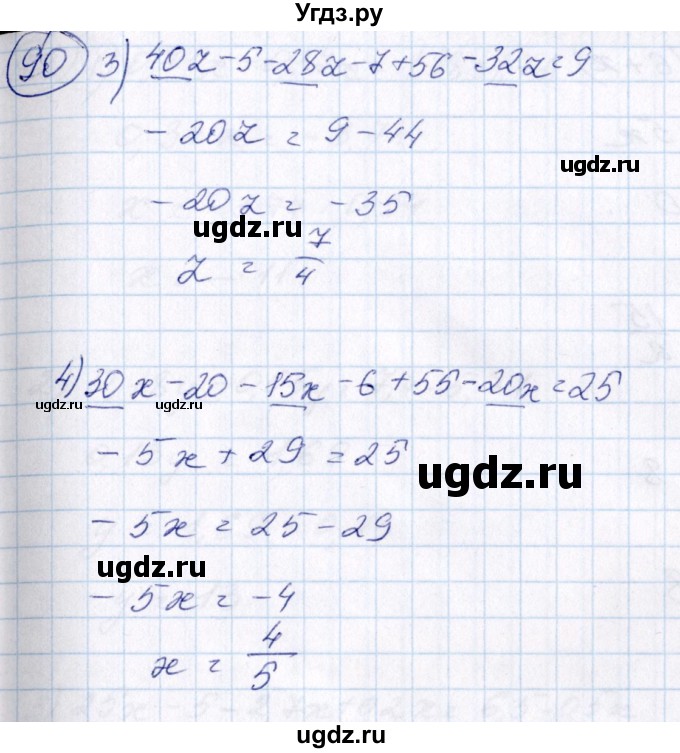 Угдз.ру
90 3) 40z - 5 - 28z - 7 + 56 - 32z = 9
- 20z = 9 - 44
ugdz.ru
- 20z = - 35
ugdz.ru
z = 7/4
4) 30x - 20 - 15x - 6 + 55 - 20x = 25
ugdz.ru
ugdz.ru
- 5x + 29 = 25
ugdz.ru
- 5x = 25 - 29
ugdz.ru
- 5x = - 4
x = 4/5
ugdz.ru